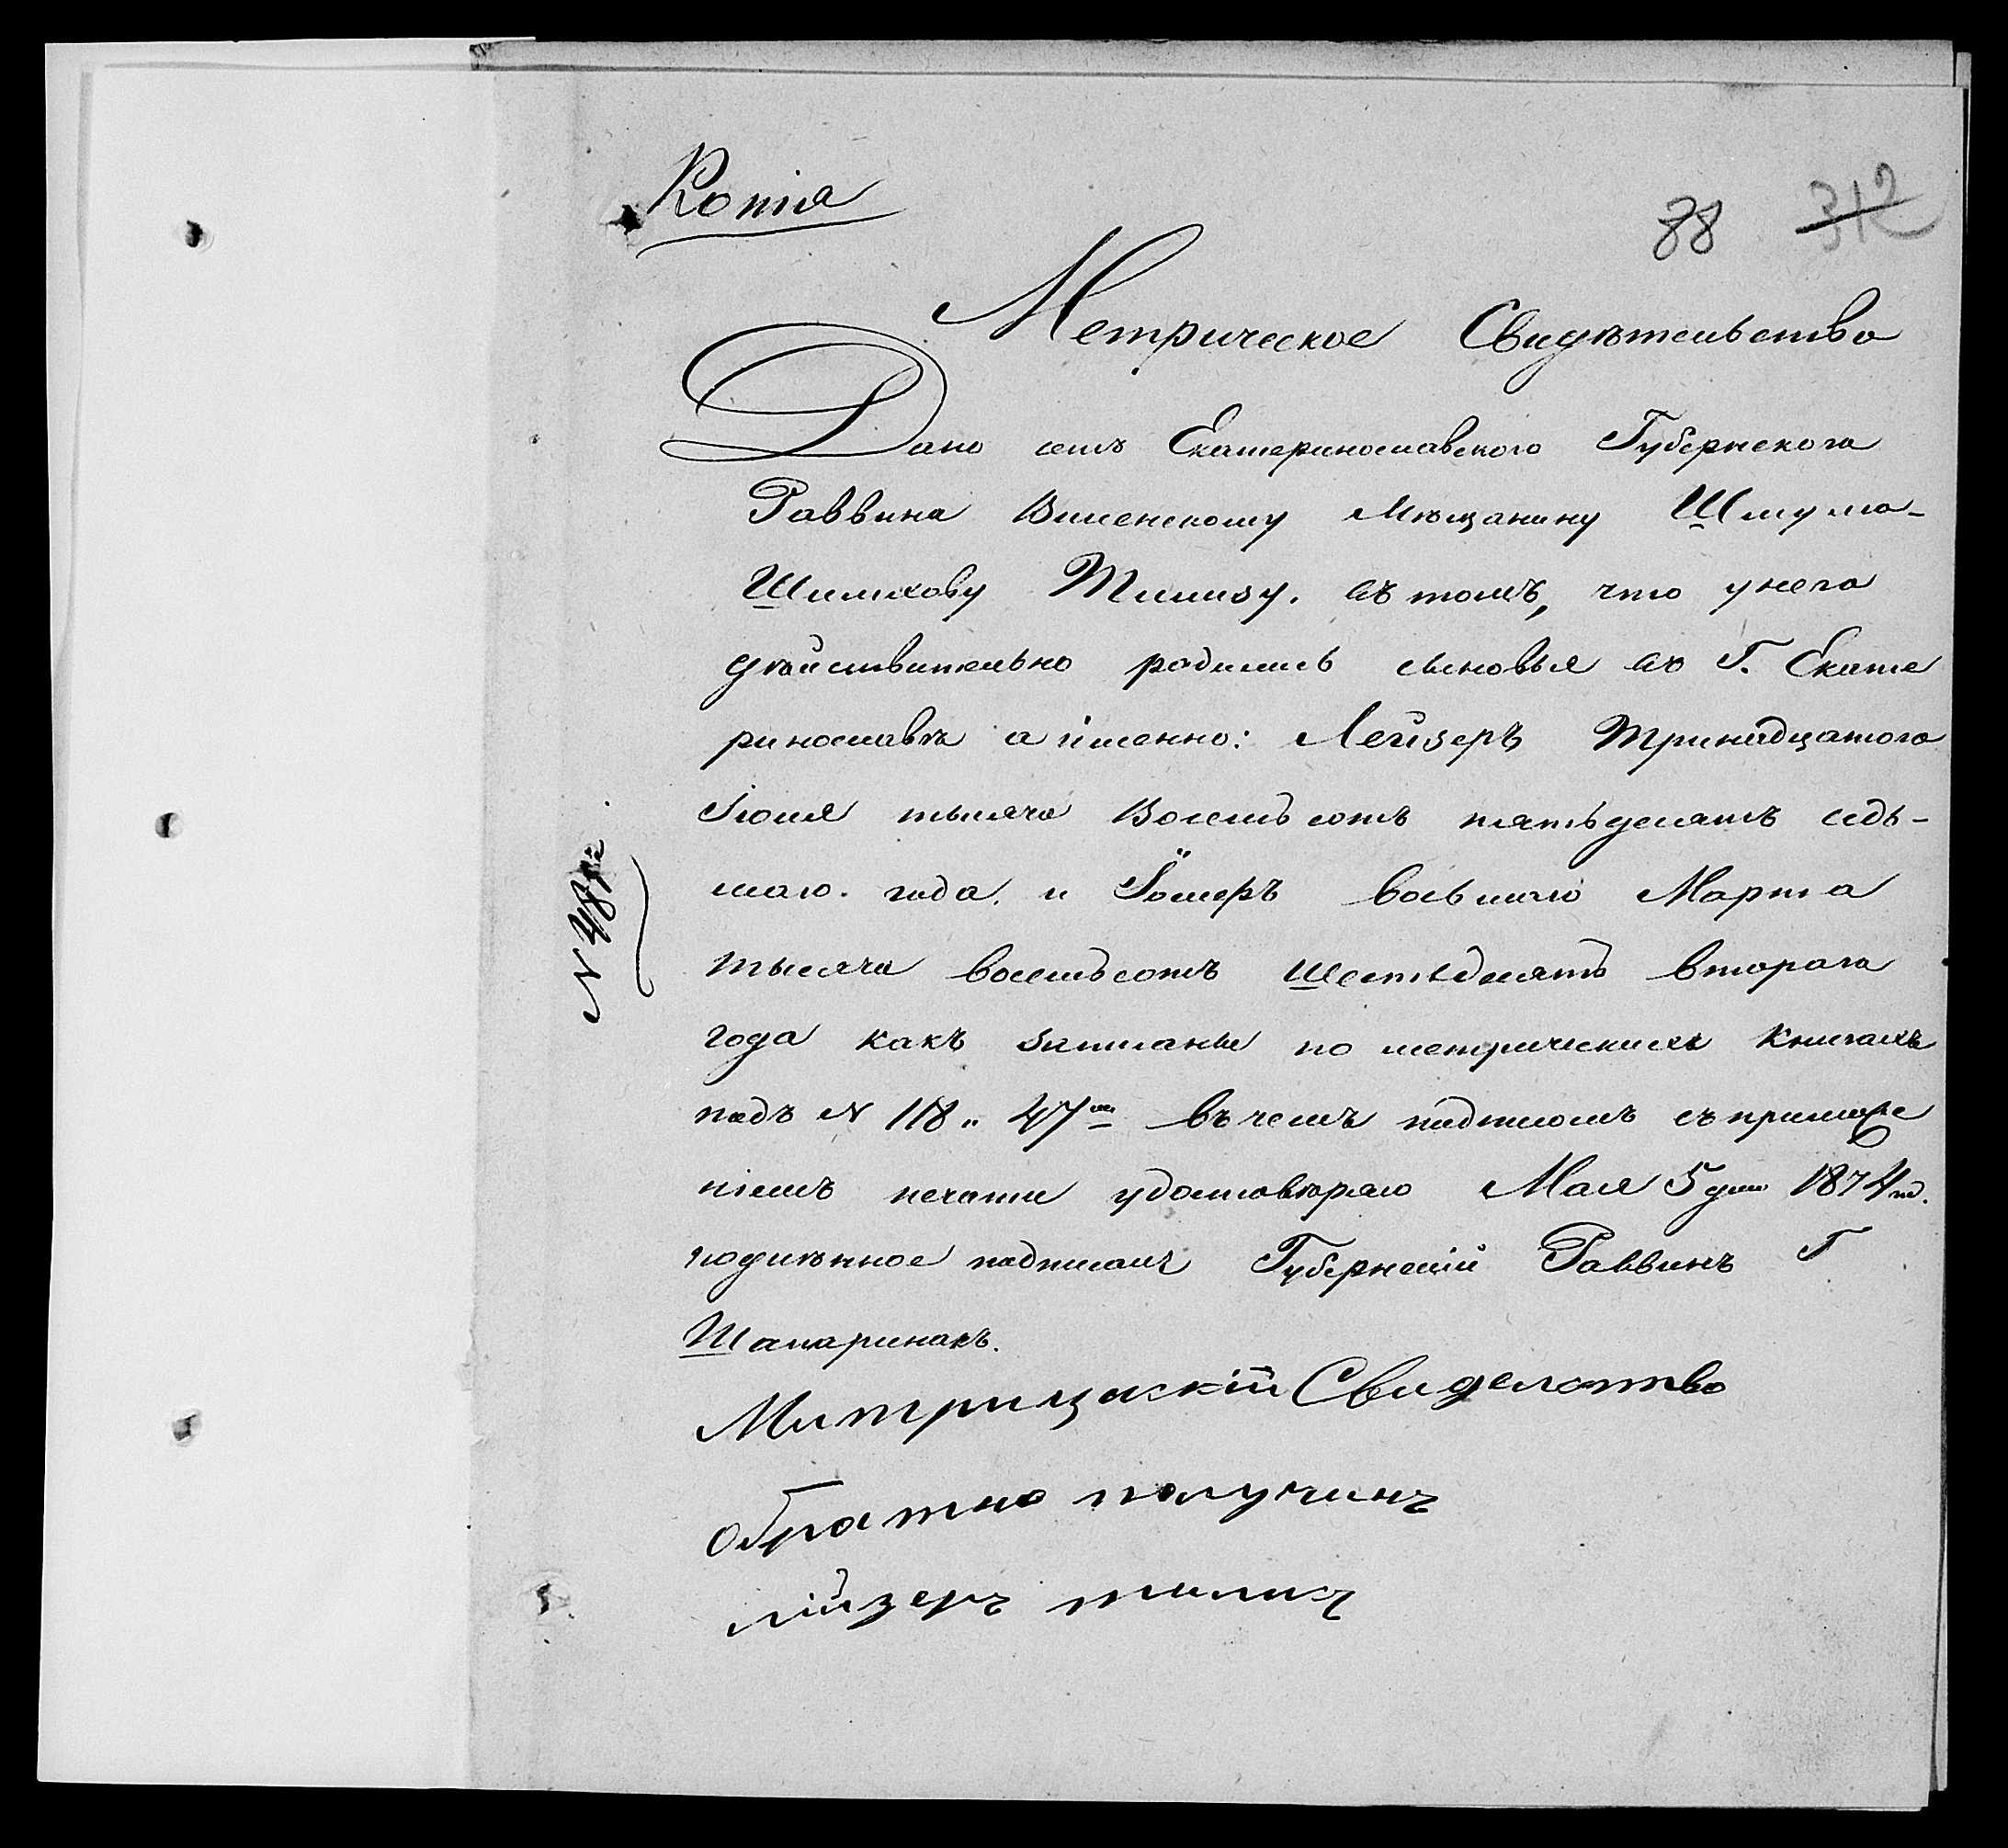 Копія
88 312
Метрическое Свидѣтельство
Дано отъ Екатеринославского Губернскога
Раввина Виленскому Мѣщанину Шмула-
Шлиомову Тилизу. въ томъ, что у него
дѣйствительно родились сыновья въ Г. Екате
ринославлѣ а именно: Лейзеръ тринадцатого
Іюля тысяча восемьсотъ пятьдесятъ седь-
маго. года. и восьмаго Марта
тысяча восемьсотъ шестьдесятъ втораго
года какъ записаны по метрическимъ книгамъ
подъ N 118 „ 47 въ чемъ подписомъ съ приложе
ніемъ печати удостовѣряю Мая 5 дня 1874 го.
подлинное подписалъ Губернскій Раввинъ Г
Митрицаскій Свиделотво
обратно получилъ
лійзеръ тилис